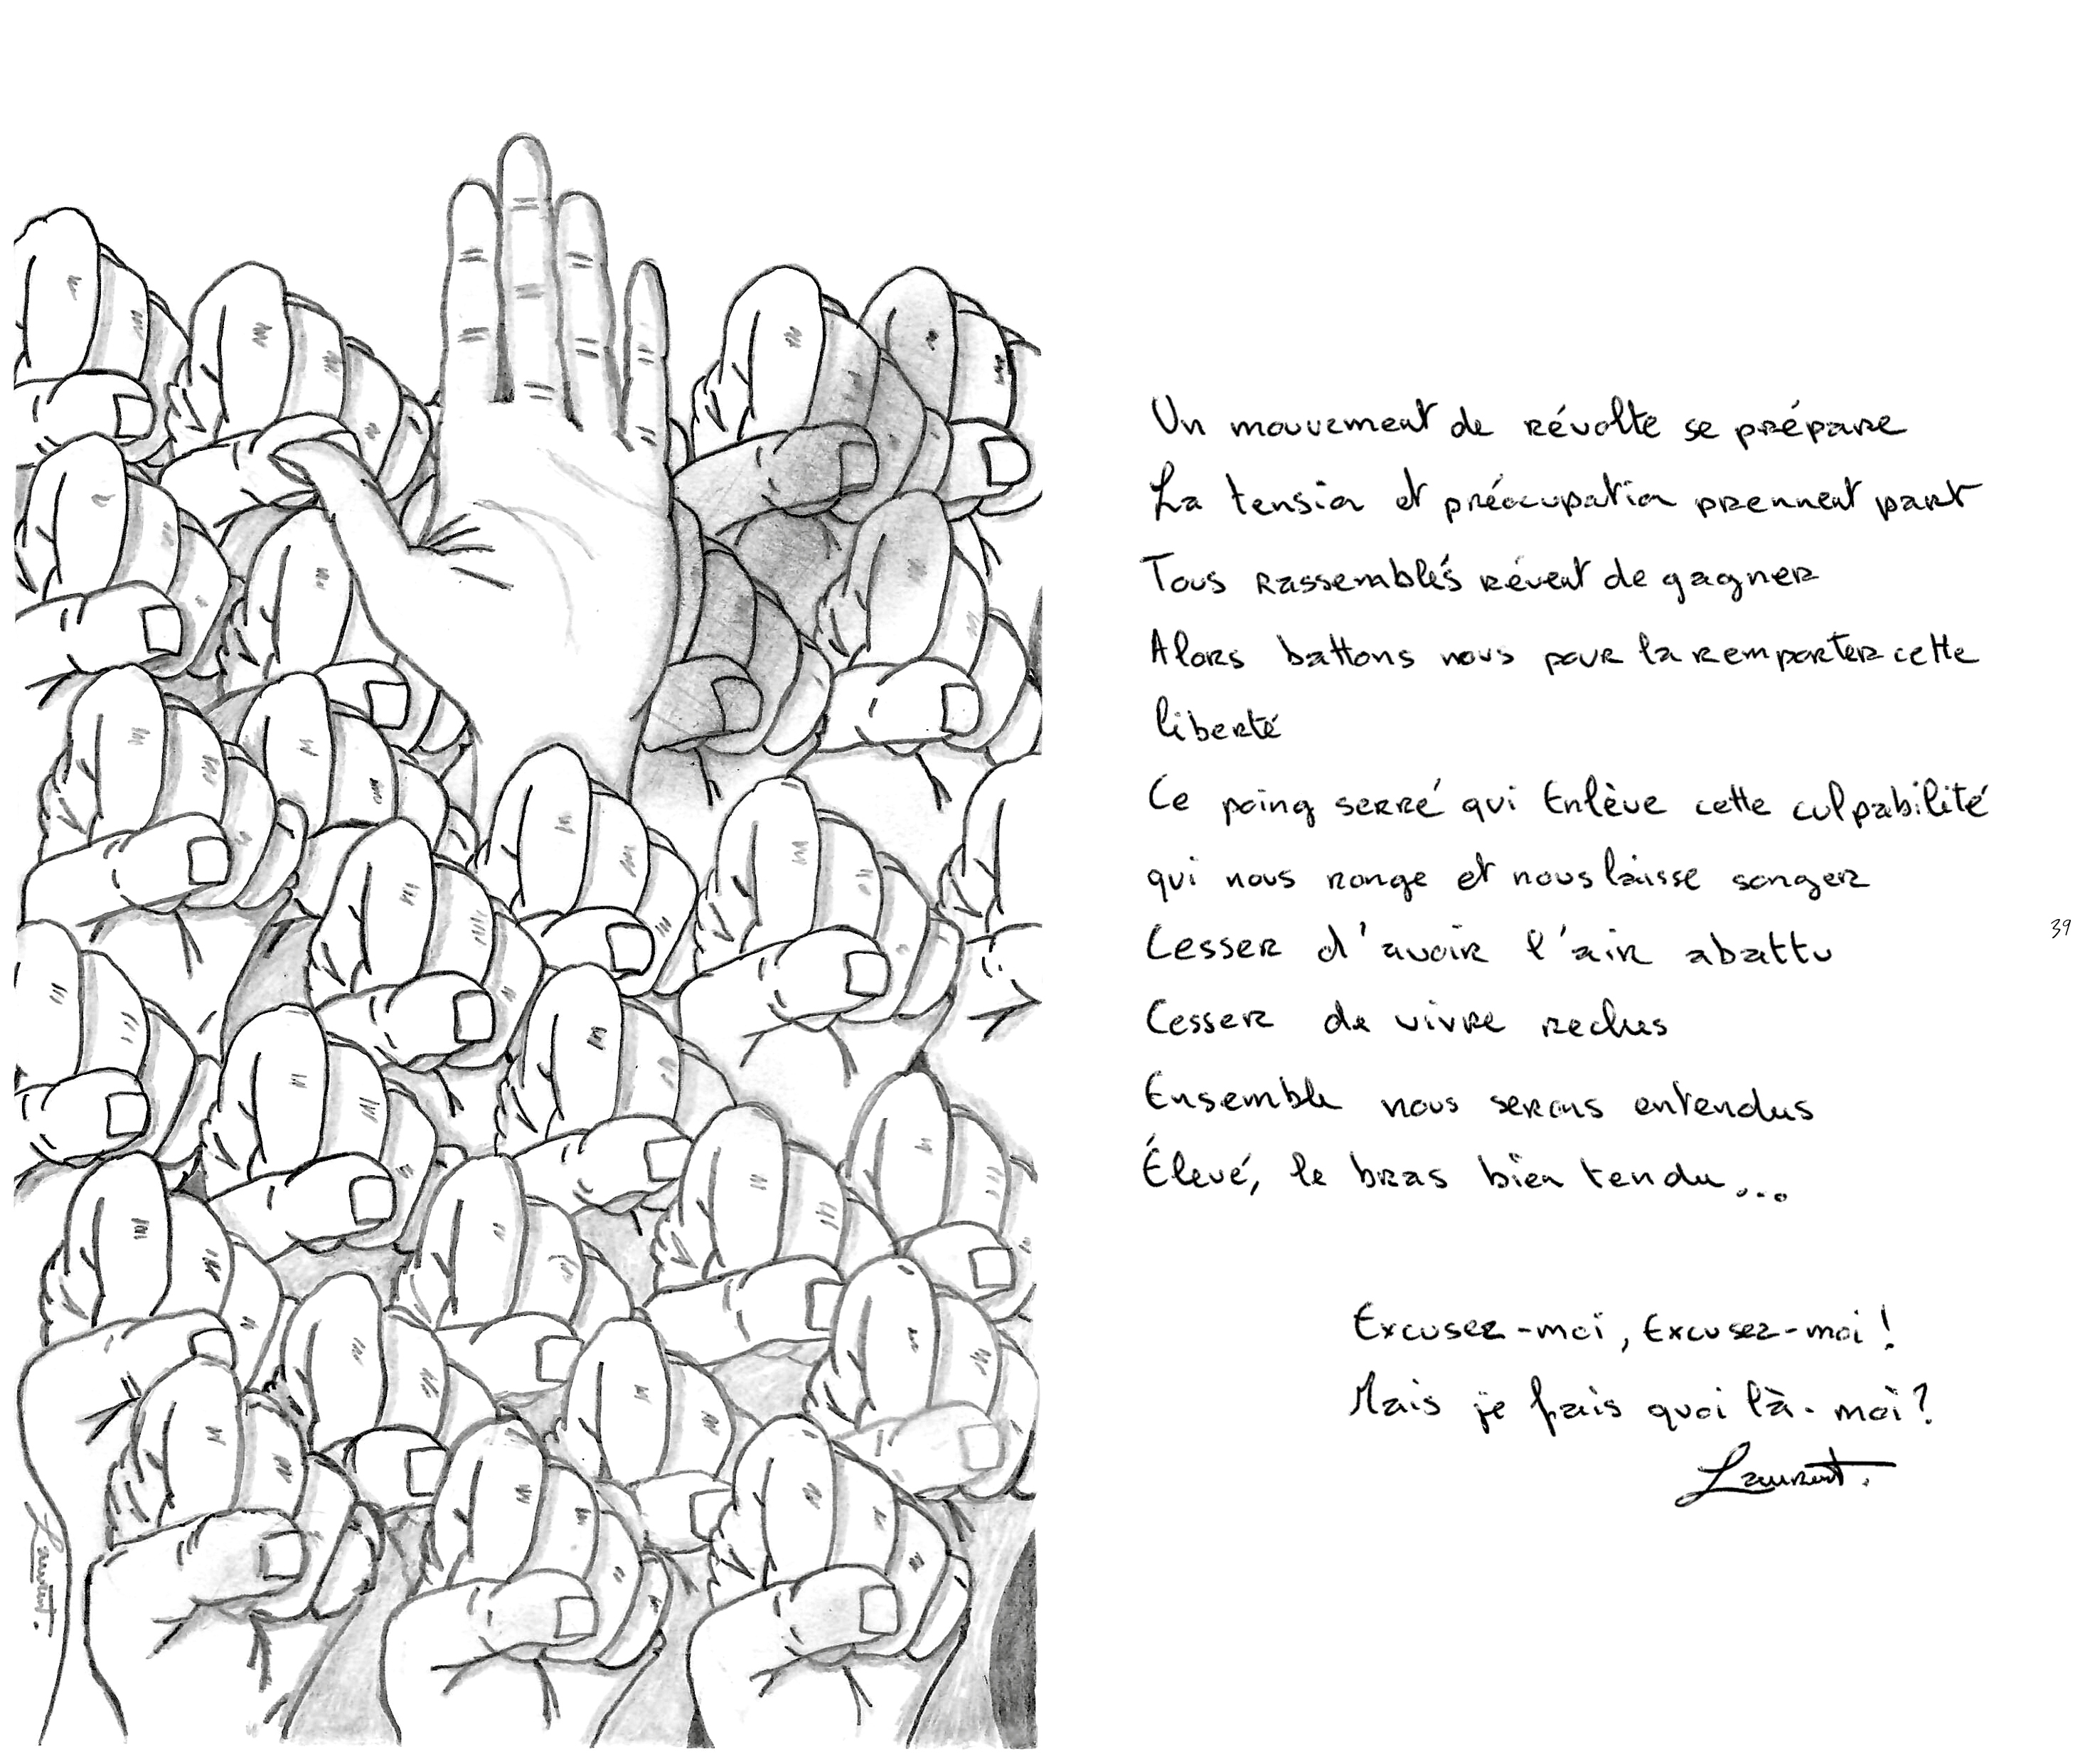 Un mouvement de révolte se prépare
La tension et préocupation prennent part
Tous rassemblés rêvent de gagner
Alors battons nous pour la remporter cette
liberté
Ce poing serré qui Enlève cette culpabilité
qui nous ronge et nous laisse songer
Cesser d'avoir l'air abattu
39
Cesser de vivre reclus
Ensemble nous serons entendus
Élevé, le bras bien tendu...
Excusez-moi, Excusez-moi !
Mais je fais quoi là-moi ?
Laurent.
Laurent.